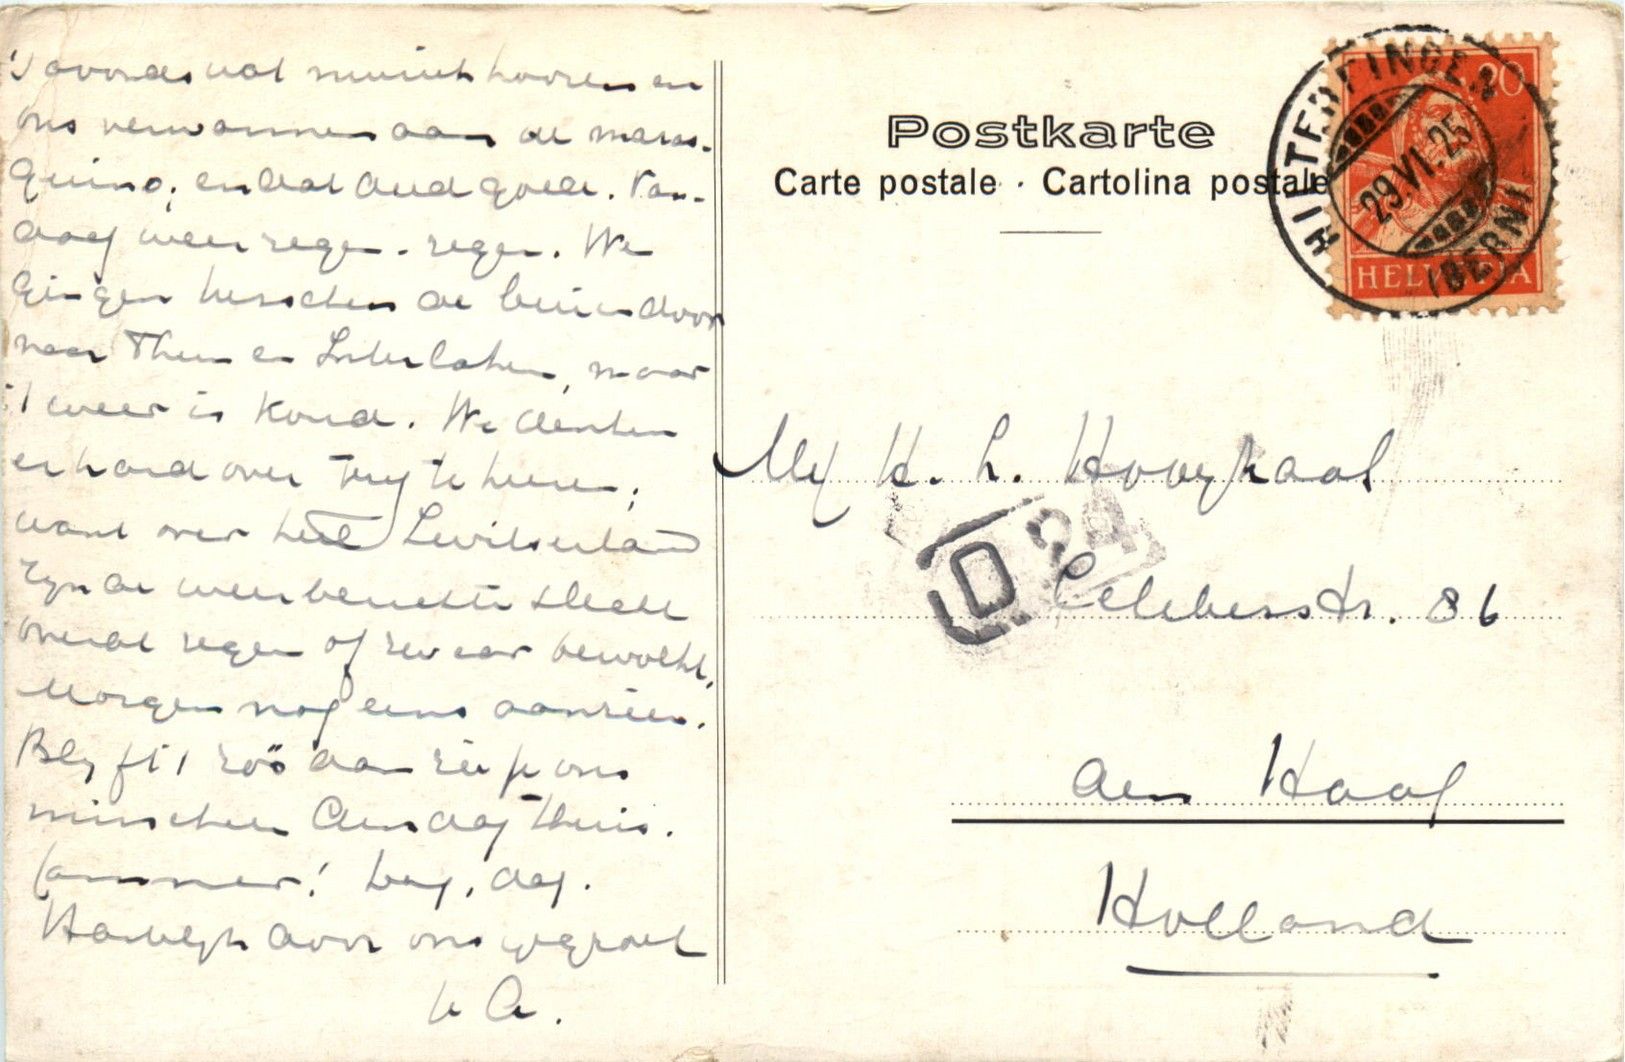 'S avonds wat muziek hooren en
ons verwarmen aan de maras-
quino; en dat deed goed. Van-
daag weer regen - regen. We
gingen tusschen de buien door
naar Thun en Interlaken, maar
't weer is koud. We denken
er hard over terug te keeren;
want over heel Zwitserland
zyn de weerberichten slecht
overal regen of zwaar bewolkt.
Morgen nog eens aanzien.
Blyft 't zoo dan zie je ons
misschien Dinsdag thuis.
Jammer! Dag, dag.
Hartelyk door ons gegroet
A.
Postkarte
Carte postale · Cartolina postale
HILTERFINGEN
29.VI.25
(BERN)
20
HELVETIA
H. L. Hooghaal
D 24
Celebesstr. 86
den Haag
Holland